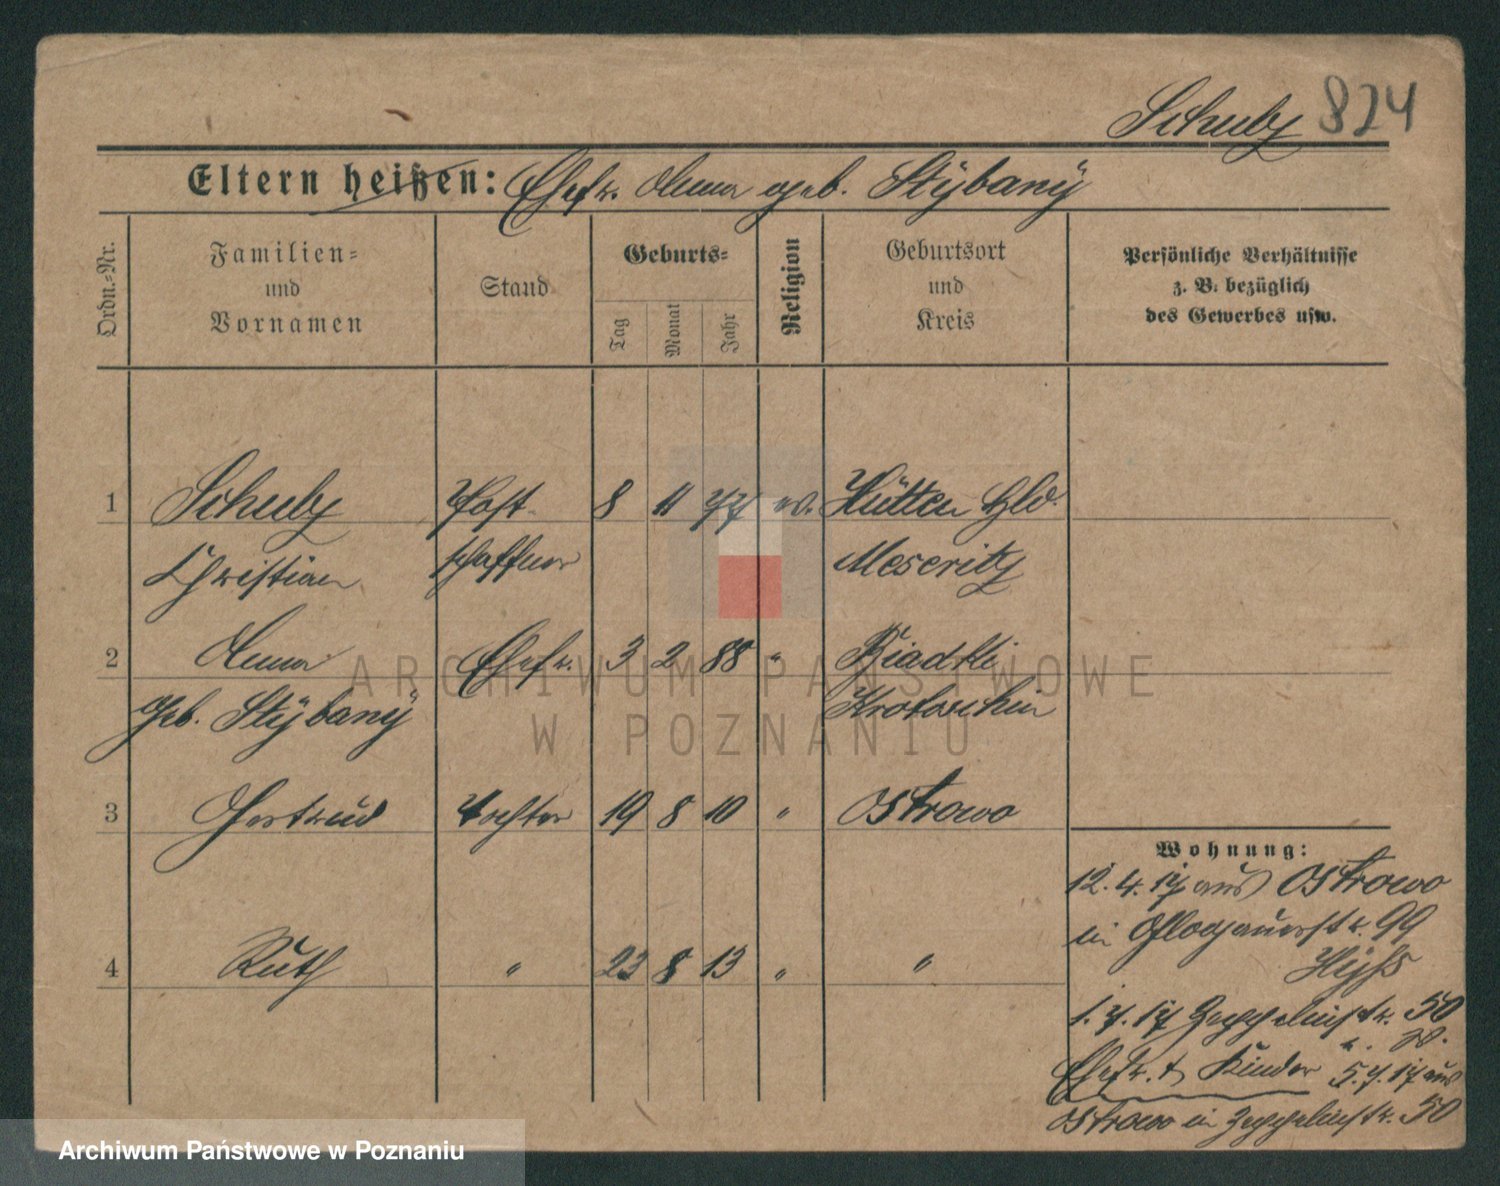 Schulz 824
Eltern heißen: Ehefr. Anna geb. Stÿbanÿ
Ordn.-Nr.
Familien-
und
Vornamen
Stand
Geburts-
Tag
Monat
Jahr
Religion
Geburtsort
und
Kreis
Persönliche Verhältnisse
z. B. bezüglich
des Gewerbes usw.
1 Schulz Post- 8 11 77 ev. Hütten Hld.
Christian schaffner Meseritz
2 Anna Ehefr. 3 2 88 " Biadki
geb. Stÿbanÿ Krotoschin
3 Gertrud Tochter 19 8 10 " Ostrowo
4 Ruth " 23 8 13 " "
Wohnung:
12.4.17 aus Ostrowo
in Glogauerstr. 99
1.7.17 Zeppelinstr. 50
Ehefr. & Kinder 5.7.17 aus
Ostrowo in Zeppelinstr. 50
ARCHIWUM PAŃSTWOWE
W POZNANIU
Archiwum Państwowe w Poznaniu